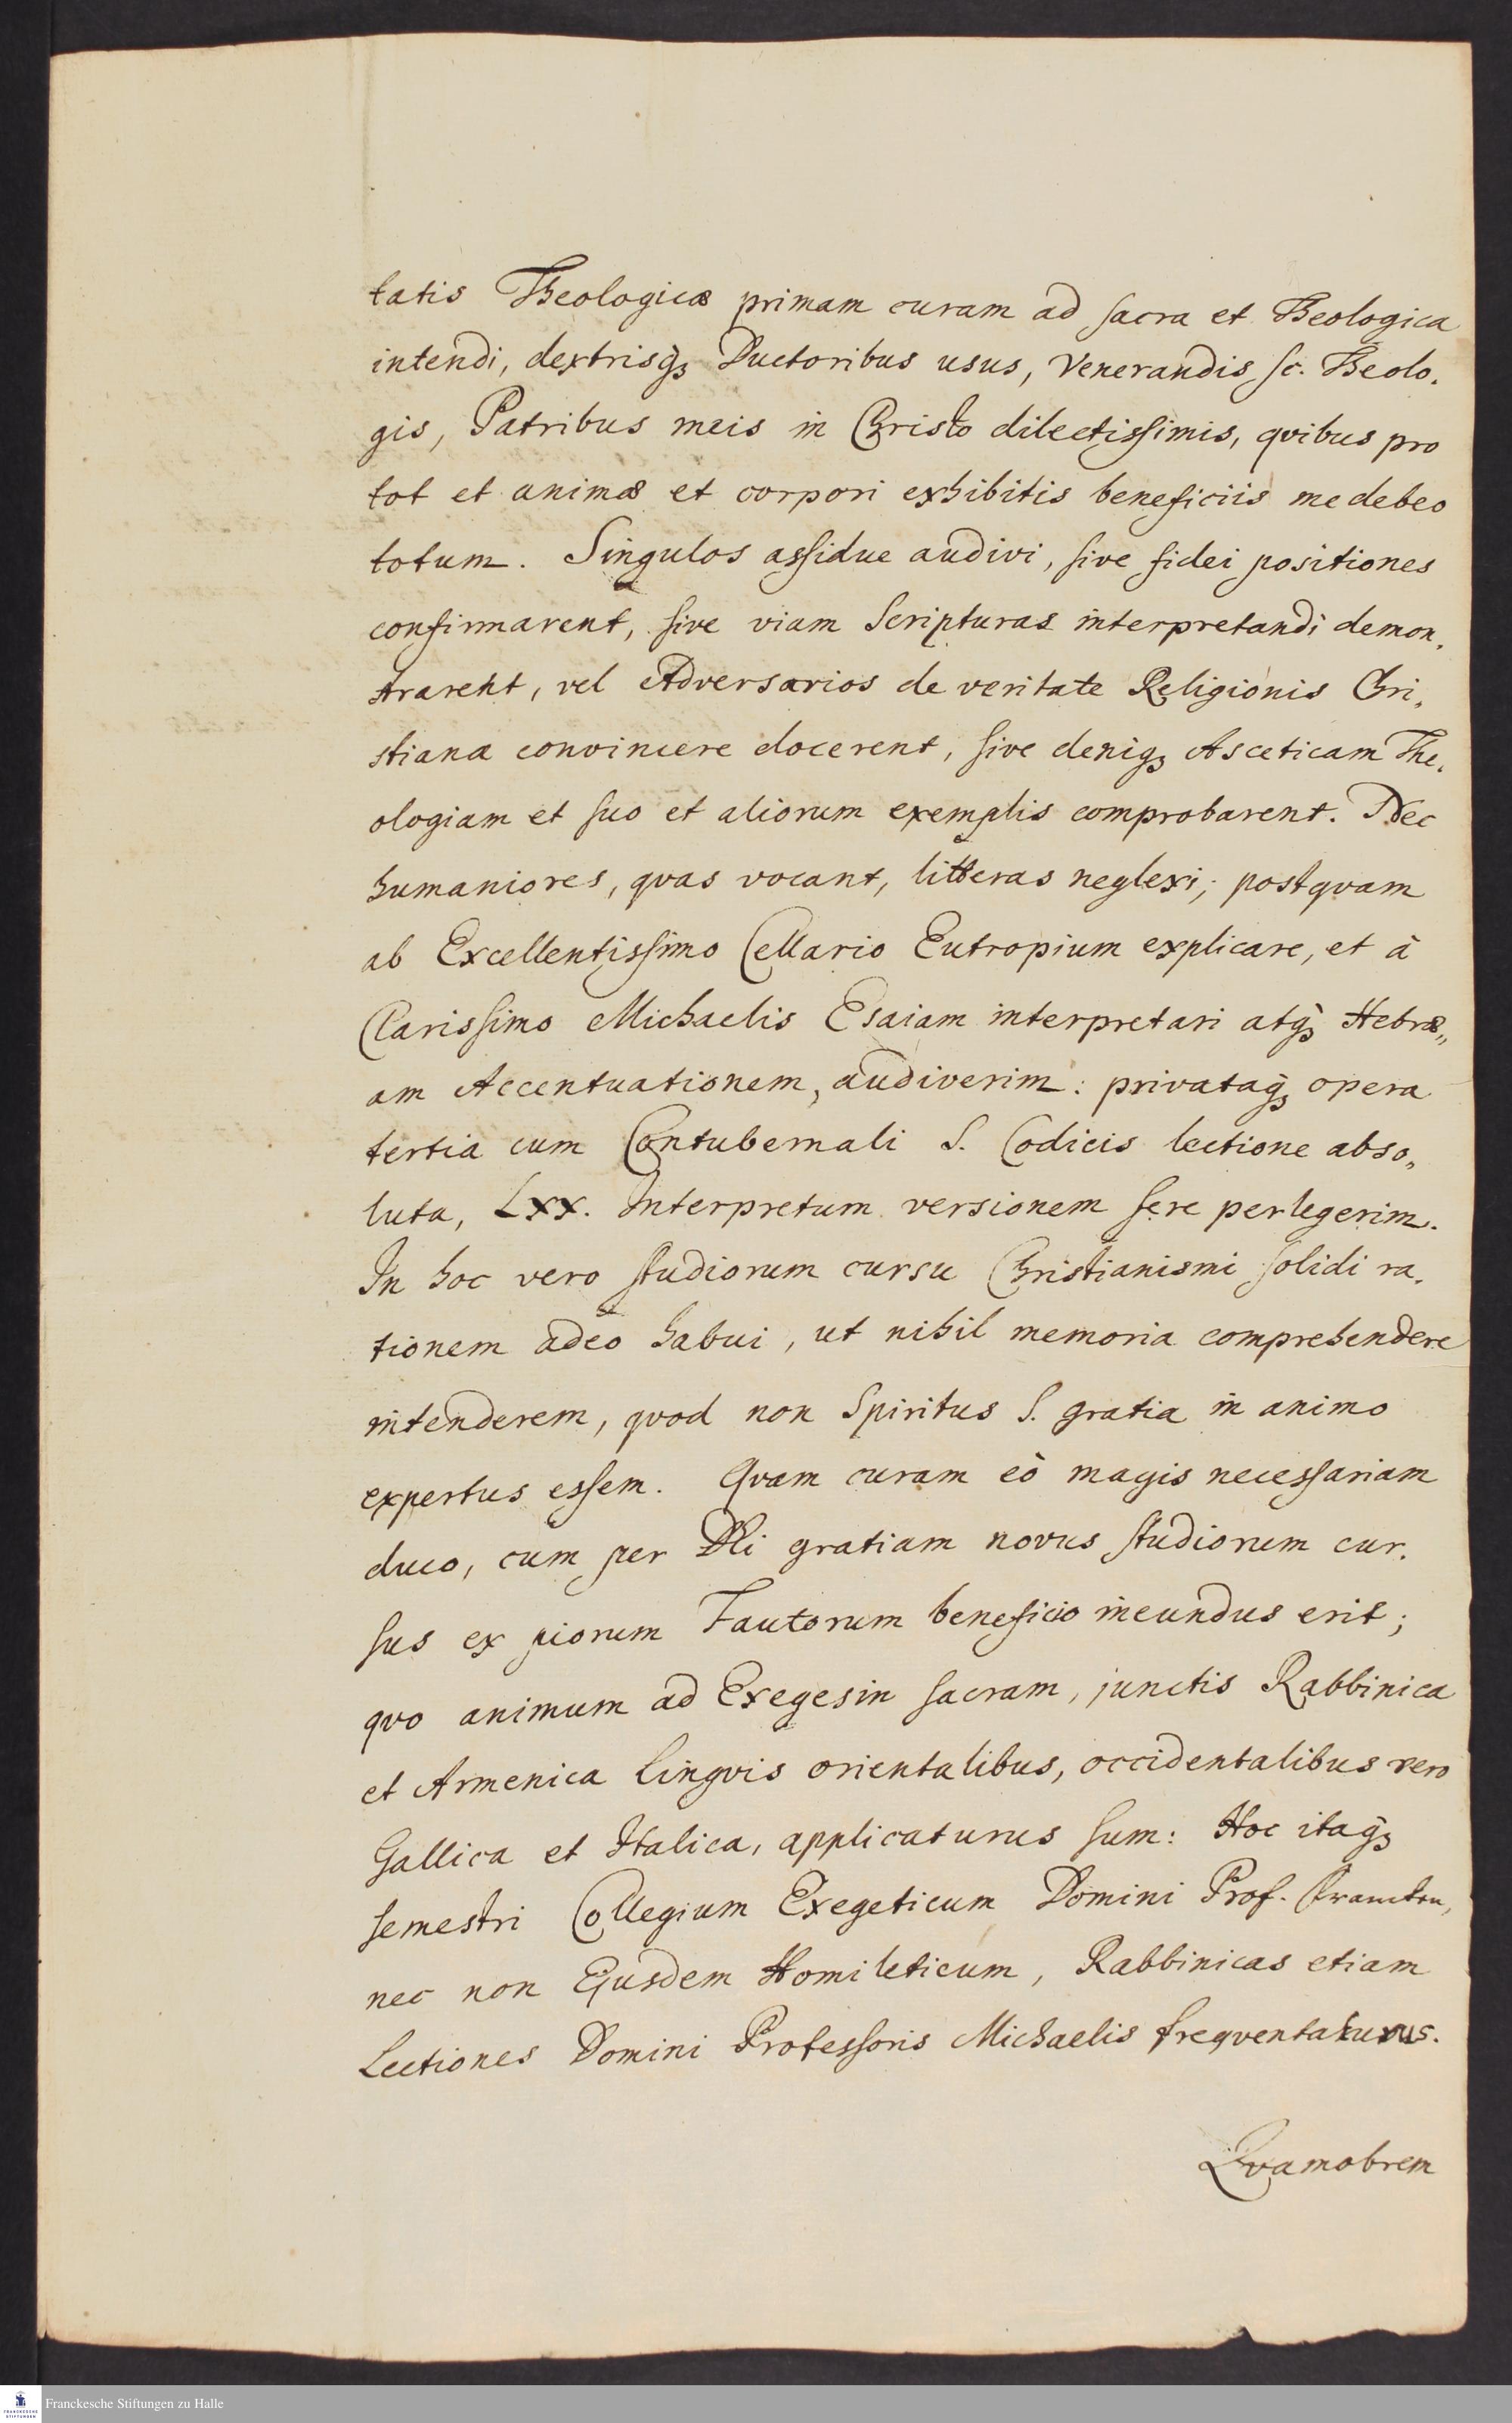 tatis Theologicæ primam curam ad sacra et Theologica
intendi, dextrisq; Ductoribus usus, Venerandis sc. Theolo,
gis, Patribus meis in Christo dilectissimis, qvibus pro
tot et animæ et corpori exhibitis beneficiis me debeo
totum. Singulos assidue audivi, sive fidei positiones
confirmarent, sive viam Scripturas interpretandi demon,
strarent, vel Adversarios de veritate Religionis Chri,
stiana convincere docerent, sive deniq; Asceticam The,
ologiam et suo et aliorum exemplis comprobarent. Nec
humaniores, qvas vocant, litteras neglexi; postqvam
ab Excellentissimo Cellario Eutropium explicare, et à
Clarissimo Michaelis Esaiam interpretari atq; Hebræ,,
am Accentuationem, audiverim: privataq; opera
tertia cum Contubernali S. Codicis lectione abso,
luta, LXX. Interpretum versionem fere perlegerim.
In hoc vero studiorum cursu Christianismi solidi ra,
tionem adeo habui, ut nihil memoria comprehendere
intenderem, qvod non Spiritus S. gratia in animo
expertus essem. Qvam curam eò magis necessariam
duco, cum per Dei gratiam novus studiorum cur,
sus ex piorum Fautorum beneficio ineundus erit;
qvo animum ad Exegesin sacram, junctis Rabbinica
et Armenica Lingvis orientalibus, occidentalibus vero
Gallica et Italica, applicaturus sum: Hoc itaq;
semestri Collegium Exegeticum Domini Prof.
nec non Ejusdem Homileticum, Rabbinicas etiam
Lectiones Domini Professoris Michaelis freqventaturus.
Qvamobrem
Franckesche Stiftungen zu Halle
FRANCKESCHE
STIFTUNGEN